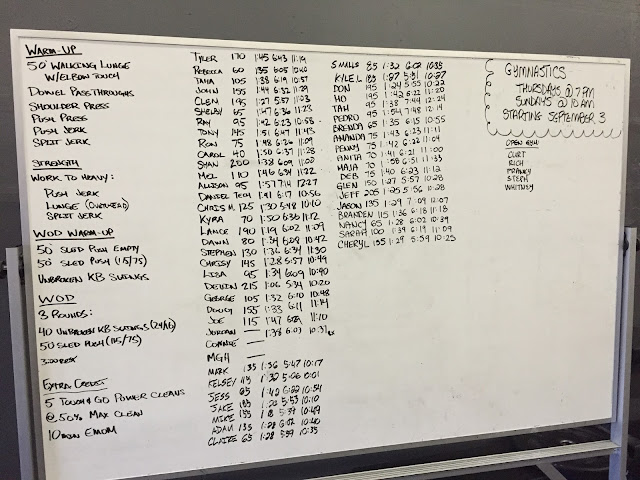 WARM-UP
50' WALKING LUNGE
W/ELBOW TOUCH
DOWEL PASS THROUGHS
SHOULDER PRESS
PUSH PRESS
PUSH JERK
SPLIT JERK
STRENGTH
WORK TO HEAVY:
PUSH JERK
LUNGE (OVERHEAD)
SPLIT JERK
WOD WARM-UP
50' SLED PUSH EMPTY
50' SLED PUSH (115/75)
UNBROKEN KB SWINGS
WOD
3 ROUNDS:
40 UNBROKEN KB SWINGS (24/16)
50' SLED PUSH (115/75)
3:00 REST
EXTRA CREDIT
5 TOUCH & GO POWER CLEANS
@ 50% MAX CLEAN
10 MIN EMOM
TYLER 170 1:45 6:43 11:19
REBECCA 60 1:35 6:05 10:40
TANA 105 1:38 6:19 10:57
JOHN 155 1:44 6:32 11:29
GLEN 195 1:27 5:57 11:03
SHELBY 65 1:47 6:36 11:23
RAY 95 1:42 6:23 10:58
TONY 145 1:51 6:47 11:43
RON 75 1:48 6:26 11:09
CAROL 40 1:50 6:37 11:28
SHAN 200 1:38 6:09 11:00
MEL 110 1:46 6:34 11:22
ALLISON 95 1:57 7:14 12:27
DANIEL 1:41 6:17 10:56
CHRIS M. 125 1:30 5:48 10:10
KYRA 70 1:50 6:36 11:12
LANCE 190 1:19 6:02 11:09
DAWN 80 1:34 6:08 10:42
STEPHEN 130 1:36 6:34 11:30
CHRISY 145 1:28 5:57 10:49
LISA 95 1:34 6:09 10:40
DEVIN 215 1:06 5:34 10:20
GEORGE 105 1:32 6:10 10:48
DOUG 155 1:33 6:11 11:14
JOE 115 1:47 11:10
JORDAN — 1:38 6:03 10:31
CONNIE —
MGH —
MARK 135 1:36 5:47 10:17
KELSEY 1:32
JESS 65 1:42 6:22 10:54
JAKE 5:53 10:10
MIKE 10:49
ADAM 135 1:28 6:02 10:40
CLAIRE 65 1:28 5:57 10:35
SMALLS 85 1:32 6:02 10:35
KYLE L. 185 1:27 5:51 10:27
DON 195 1:24 5:55 10:22
HO 195 1:42 6:22 11:20
TAH 95 1:38 7:44 12:24
PEDRO 95 1:54 7:48 12:14
BRENDA 65 1:35 6:15 10:55
AMANDA 75 1:43 6:23 11:11
PENNY 75 1:42 6:22 11:04
ANITA 70 1:41 6:21 11:00
MAJA 70 1:58 6:51 11:33
DEB 75 1:40 6:23 11:12
GLEN 150 1:27 5:57 10:28
JEFF 205 1:25 5:56 10:28
JASON 135 1:29 7:09 12:07
BRANDEN 115 1:36 6:18 11:18
NANCY 65 1:28 6:02 10:39
SARAH 100 1:39 6:19 11:09
CHERYL 155 1:27 5:59 10:25
GYMNASTICS
THURSDAYS @ 7 PM
SUNDAYS @ 10 AM
STARTING SEPTEMBER 3
OPEN GYM:
CURT
RICH
FRANKY
STEPH
WHITNEY